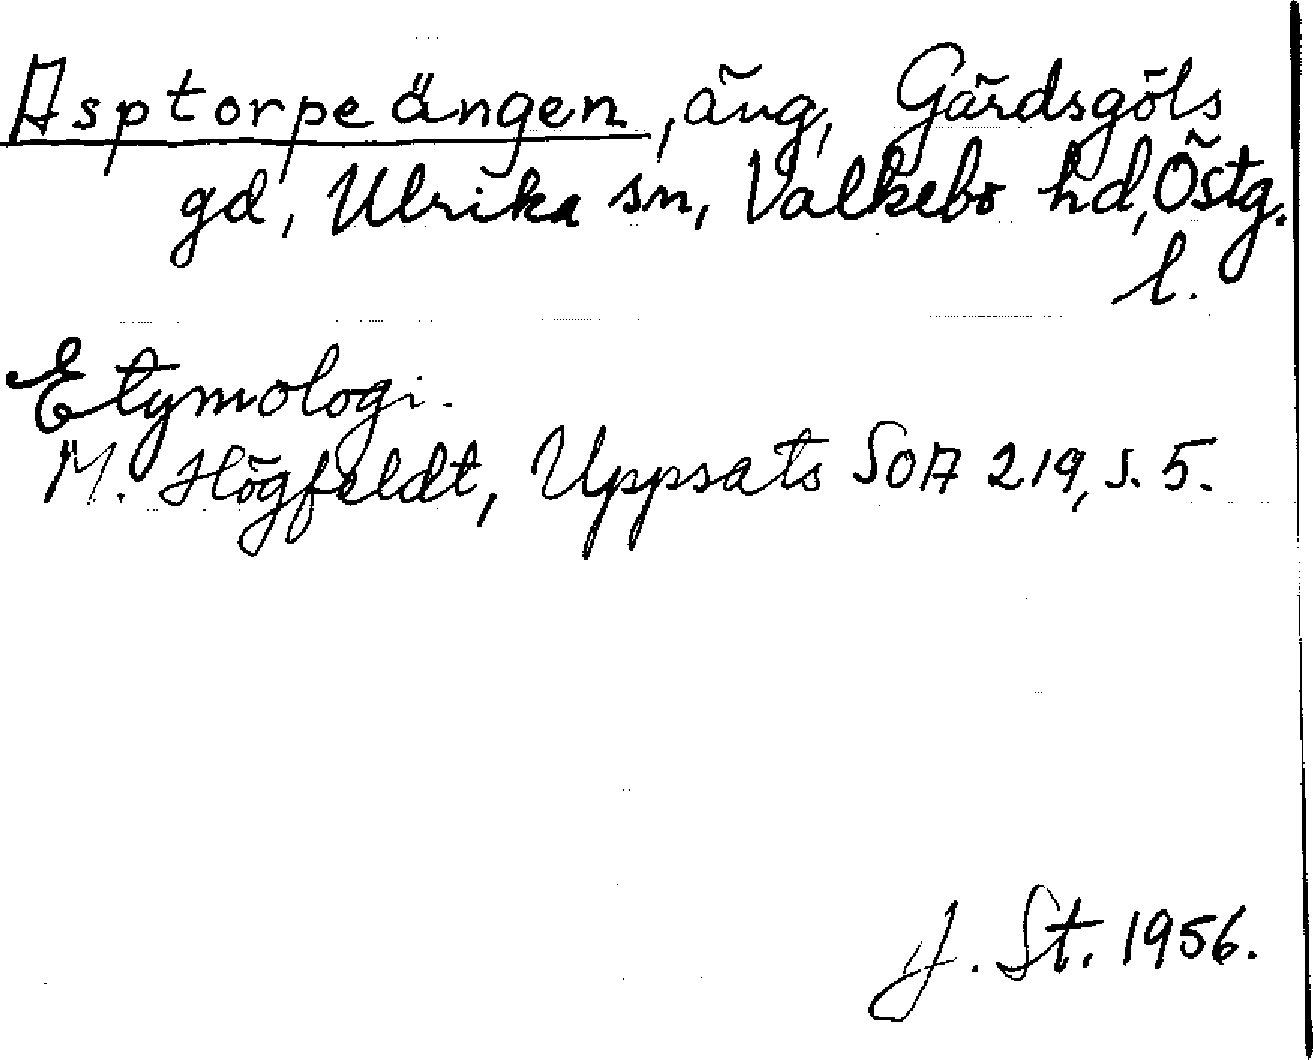 Asptorpeängen, äng, Gärdsgöls
gd, Ulrika sn, Valkebo hd, Östg.
l.
Etymologi.
M. Högfeldt, Uppsats SOA 219, s. 5.
J. St. 1956.